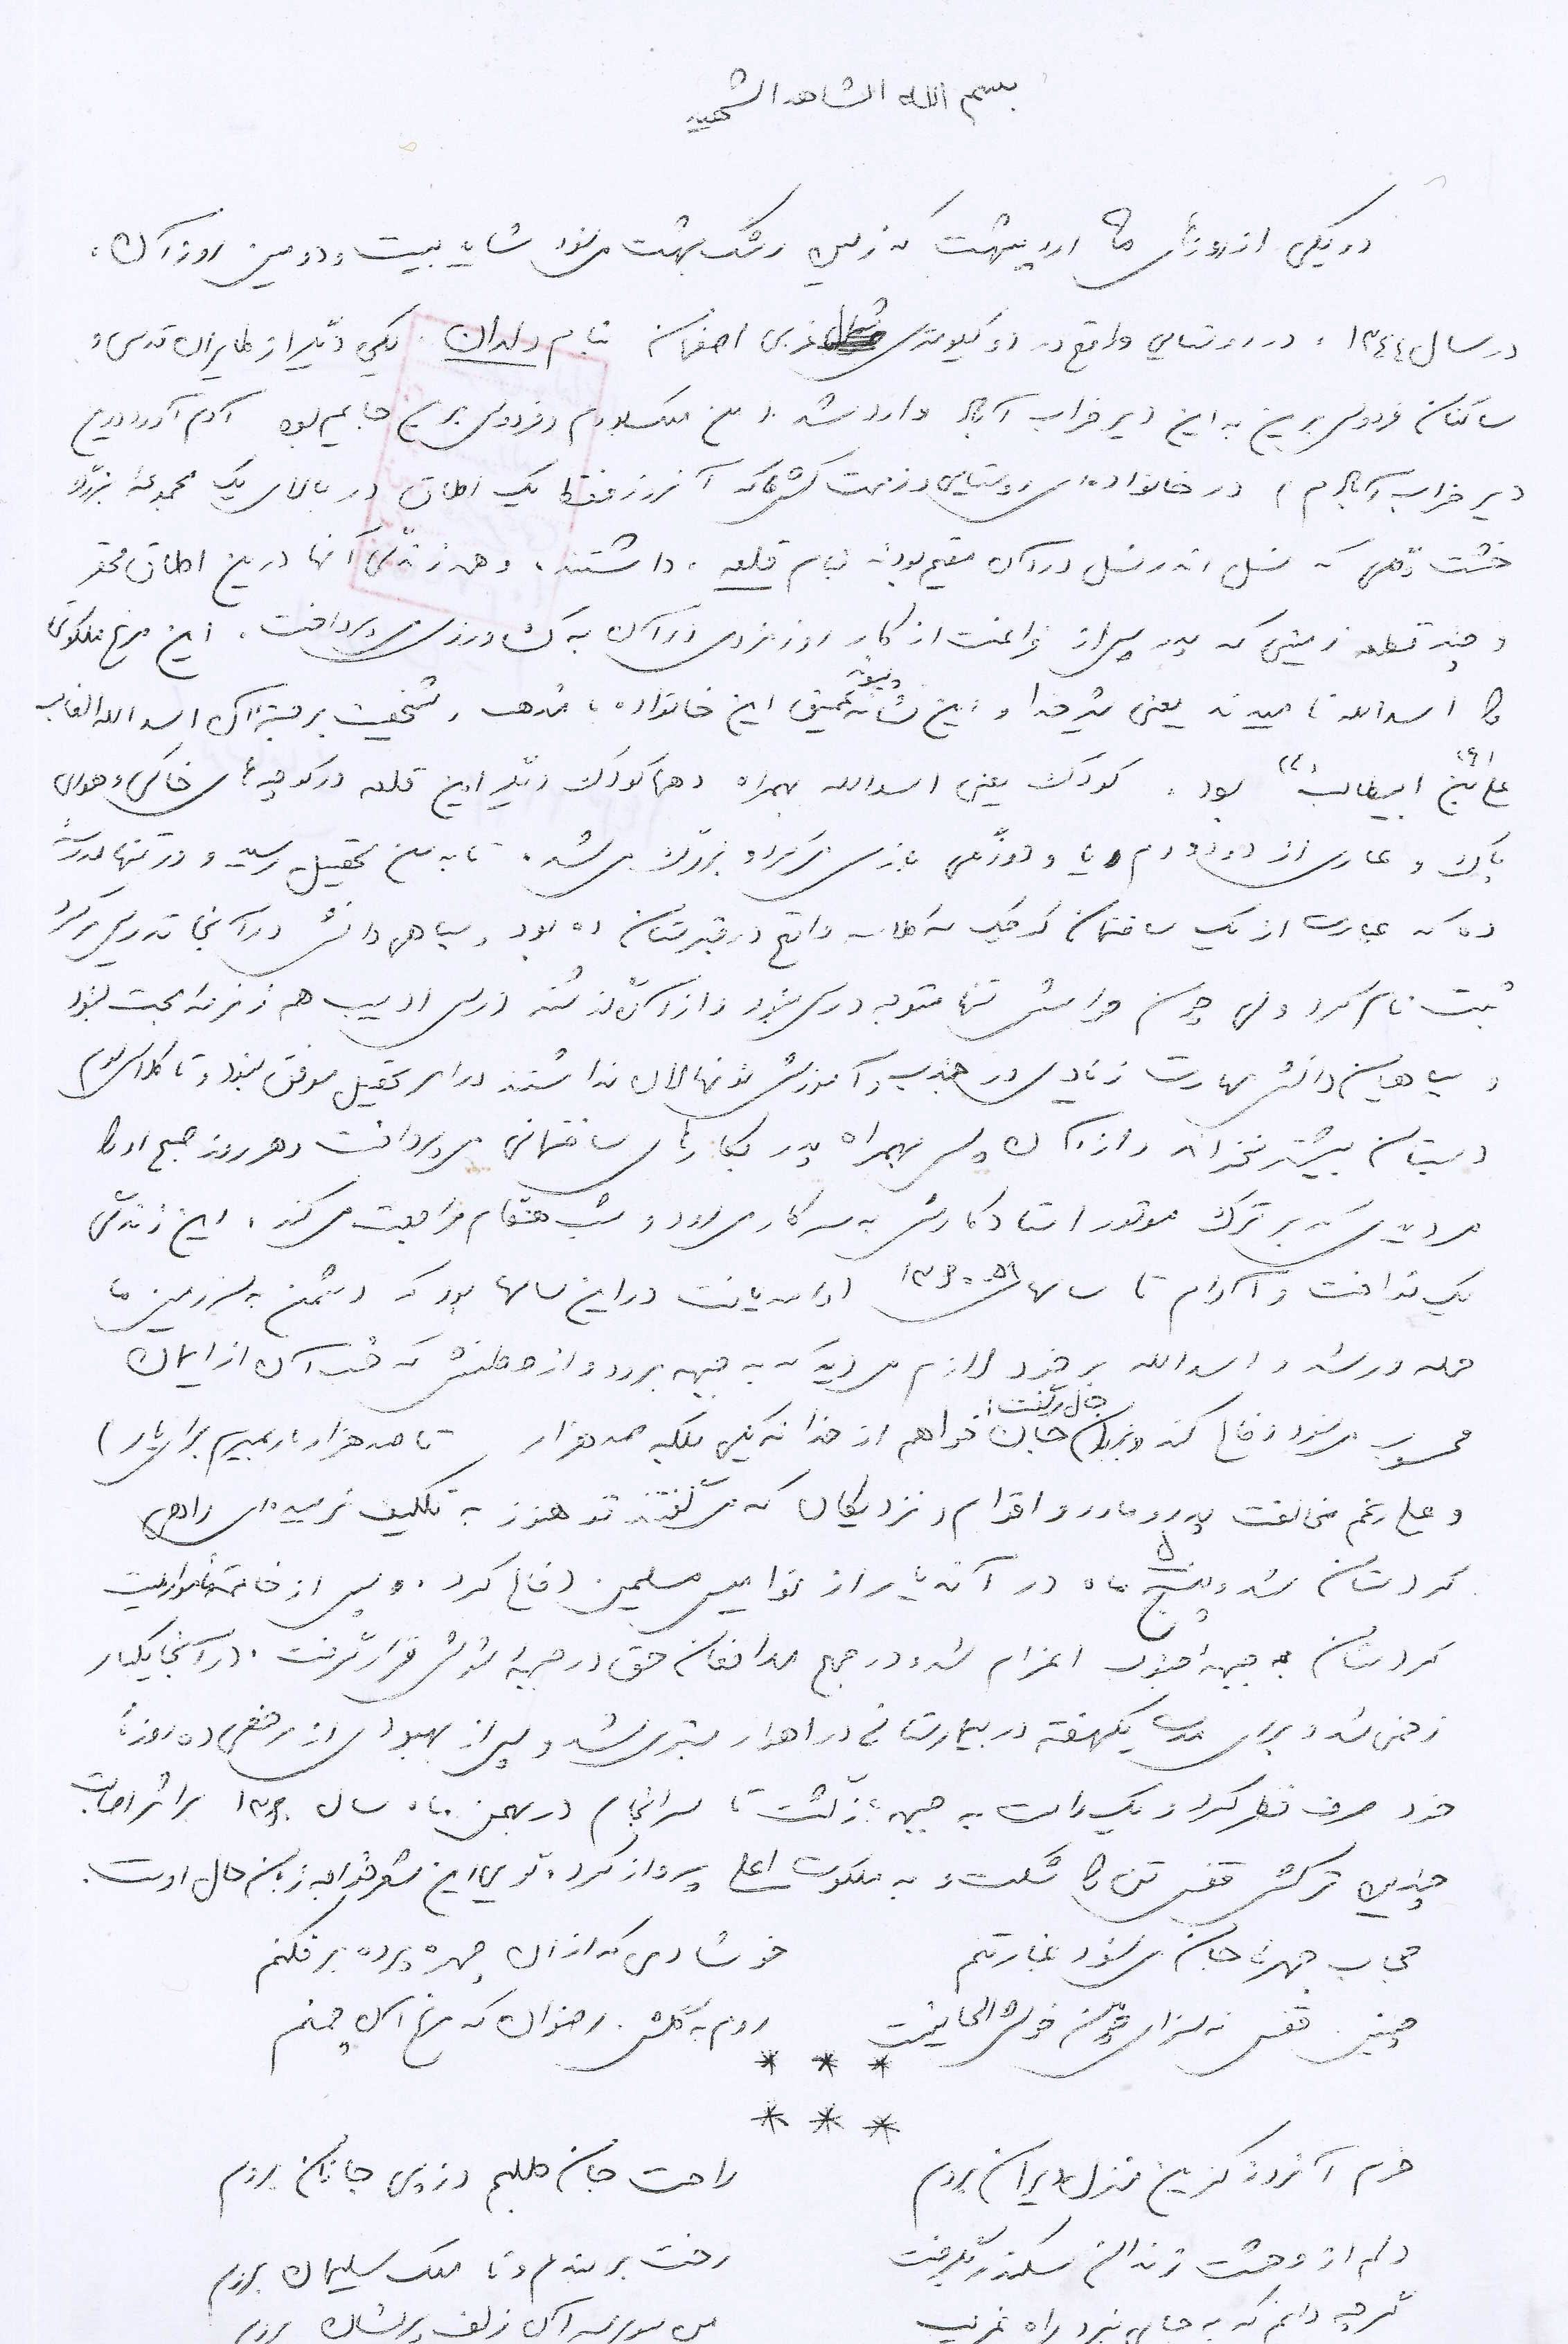 بسم الله الشاهد الشهید
در یکی از روزهای ماه اردیبهشت که زمین رشک بهشت می‌شود شاید بیست و دومین روز آن،
در سال ۱۳۴۴، در روستایی واقع در دو کیلومتری شمال غربی اصفهان بنام ولدان. یکی دیگر از طایران قدسی و
ساکنان فردوس برین به این دیر خراب آباد وارد شد. (من ملک بودم و فردوس برین جایم بود آدم آورد در این
دیر خراب آبادم) در خانواده‌ای روستایی و زحمت کش که آنروز فقط یک اطاق در بالای یک مجموعه بزرگ
خشت و گلی که نسل اندر نسل در آن مقیم بودند بنام قلعه، داشتند، و همه زندگی آنها در این اطاق محقر
و چند قطعه زمینی که پدر پس از فراغت از کار روزمزدی در آن به کشاورزی می‌پرداخت. این مرغ ملکوتی
را اسدالله نامیدند یعنی شیر خدا و این نشانه پیوند عمیق این خانواده با مذهب و شخصیت برجسته آن اسدالله الغالب
علی (ع) بن ابیطالب (ع) بود. کودک یعنی اسدالله بهمراه دهها کودک دیگر این قلعه در کوچه‌های خاکی و هوای
پاک و عاری از دود و دم و ریا و دورنگی بازی می‌کرد و بزرگ می‌شد. تا به سن تحصیل رسید و در تنها مدرسه
ده که عبارت از یک ساختمان کوچک سه کلاسه واقع در قبرستان ده بود و سپاهی دانش در آنجا تدریس می‌کرد
ثبت نام کرد ولی چون حواسش تنها متوجه درس نبود و از آن گذشته درس ادیب هم زمزمه محبت نبود
و سپاهیان دانش مهارت زیادی در جذب و آموزش نونهالان نداشتند در امر تحصیل موفق نبود و تا کلاس سوم
دبستان بیشتر نخواند و از آن پس بهمراه پدر بکارهای ساختمانی می‌پرداخت و هر روز صبح او را
می‌دیدی که بر ترک موتور استاد کارش به سر کار می‌رود و شب هنگام مراجعت می‌کند، این زندگی
یک نواخت و آرام تا سالهای ۵۹-۱۳۶۰ ادامه یافت در این سالها بود که دشمن به سرزمین ما
حمله ور شد و اسدالله بر خود لازم می‌دید که به جبهه برود و از وطنش که حب آن از ایمان
محسوب می‌شود دفاع کند و بزبان حال گفت: جان خواهم از خدا نه یکی بلکه صد هزار تا صد هزار بار بمیرم برای یار)
و علی رغم مخالفت پدر و مادر و اقوام و نزدیکان که می‌گفتند تو هنوز به تکلیف نرسیده‌ای راهی
کردستان شد و پنج ۵ ماه در آن دیار از نوامیس مسلمین دفاع کرد. و پس از خاتمه مأموریت
کردستان به جبهه جنوب اعزام شد و در جمع مدافعان حق در جبهه شوش قرار گرفت. در آنجا یکبار
زخمی شد و برای مدت یکهفته در بیمارستانی در اهواز بستری شد و پس از بهبودی از مرخصی ده روزه
خود صرف نظر کرد و یک راست به جبهه بازگشت تا سرانجام در بهمن ماه سال ۱۳۶۰ بر اثر اصابت
چندین ترکش قفس تن را شکست و به ملکوت اعلی پرواز کرد. گویی این شعر خواجه زبان حال اوست.
حجاب چهره جان می‌شود غبار تنم خوشا دمی که از آن چهره پرده برفکنم
چنین قفس نه سزای چو من خوش الحانیست روم به گلشن رضوان که مرغ آن چمنم
* * *
* * *
خرم آنروز کزین منزل ویران بروم راحت جان طلبم وز پی جانان بروم
دلم از وحشت زندان سکندر بگرفت رخت بربندم و تا ملک سلیمان بروم
گرچه دانم که به جایی نبرد راه غریب من به بوی سر آن زلف پریشان بروم